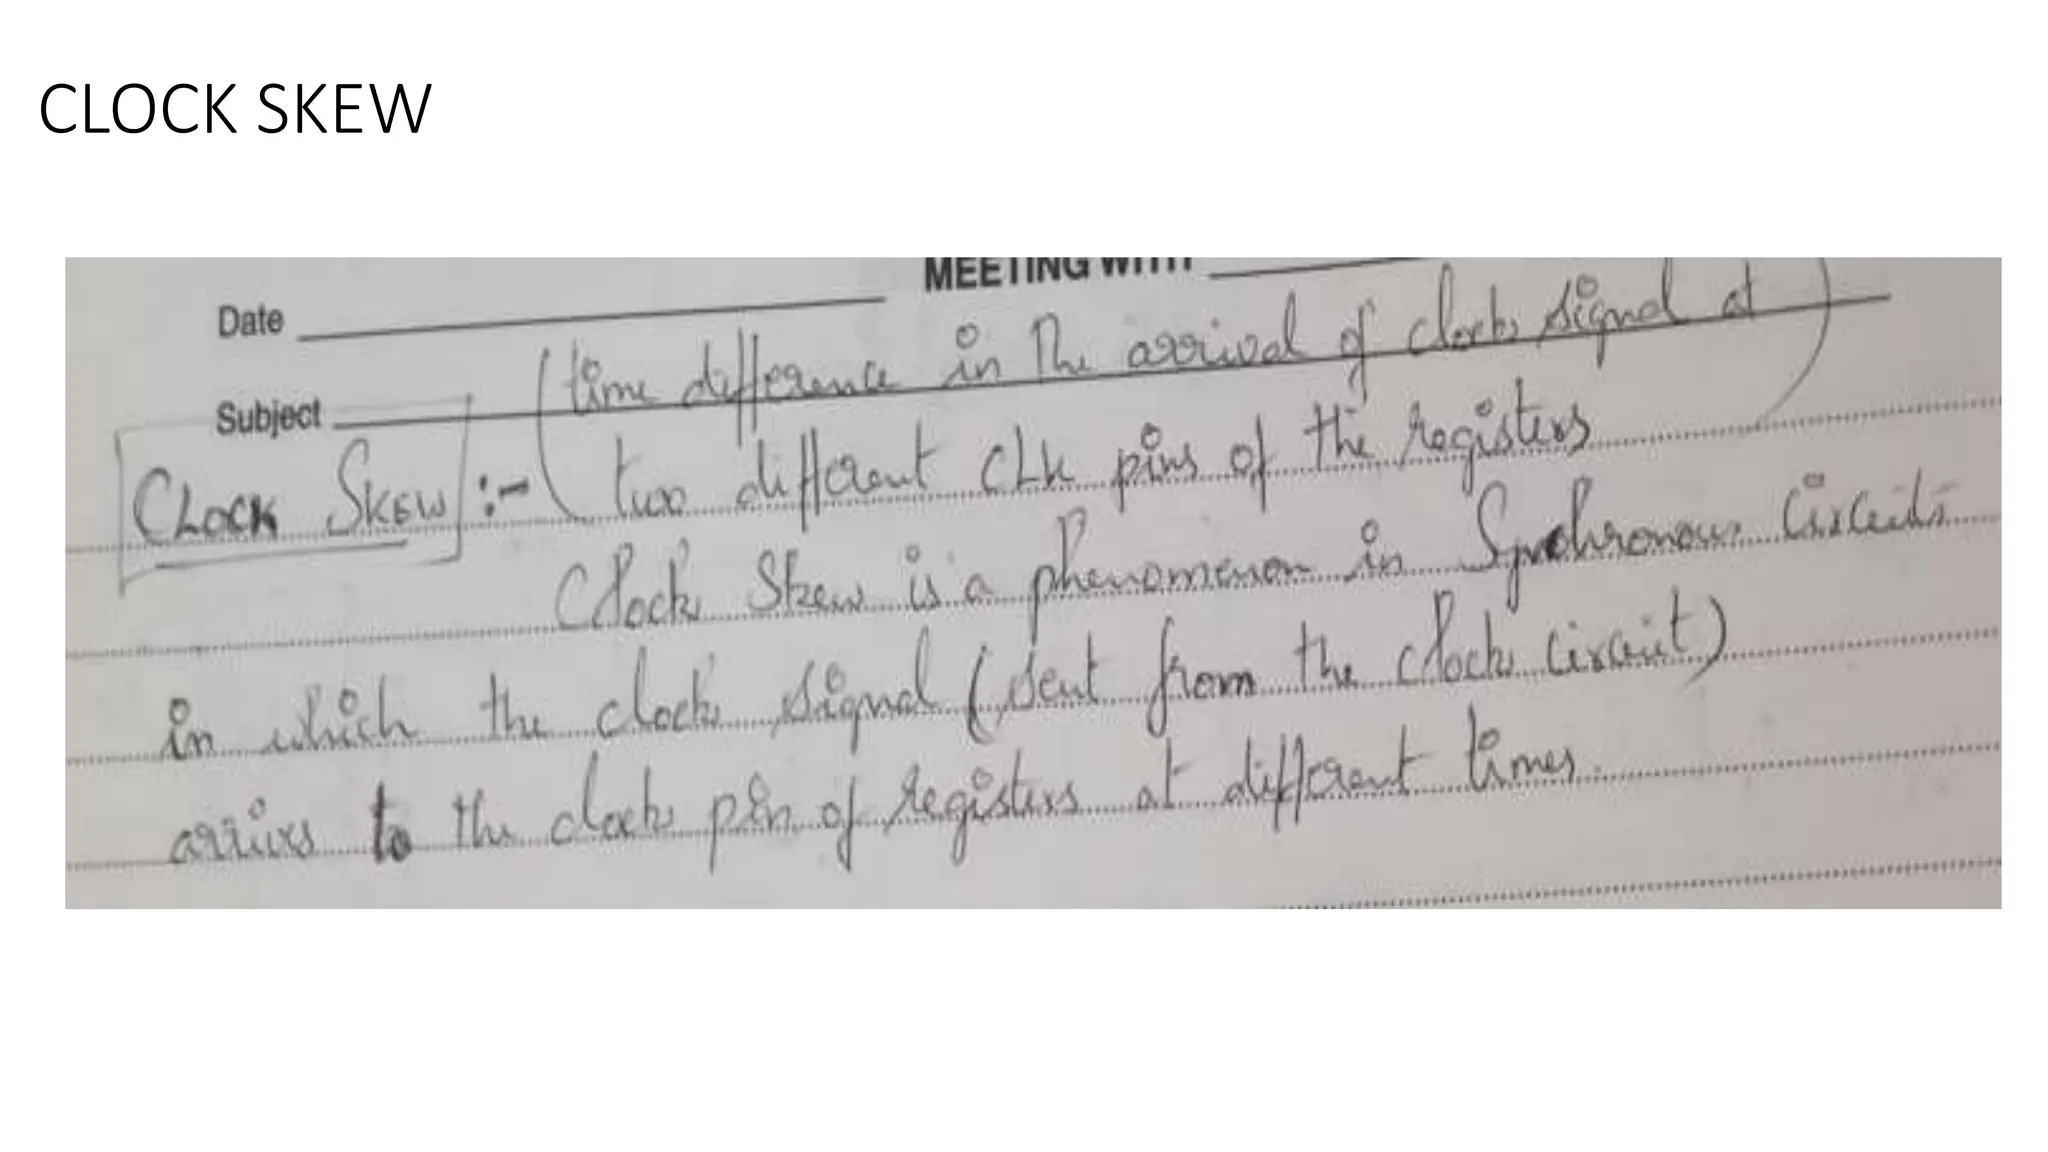 CLOCK SKEW
MEETING WITH
Date
(time difference in the arrival of clock signal at
Subject
CLOCK SKEW :- two different CLK pins of the registers)
Clock Skew is a phenomenon in Synchronous Circuits
in which the clock signal (sent from the clock circuit)
arrives to the clock pin of registers at different times.